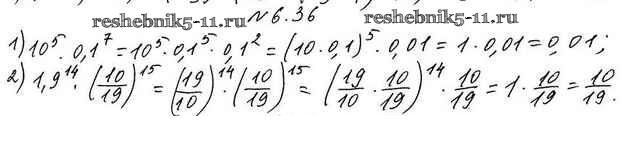 reshebnik5-11.ru №6.36 reshebnik5-11.ru
1) 10⁵ · 0,1⁷ = 10⁵ · 0,1⁵ · 0,1² = (10 · 0,1)⁵ · 0,01 = 1 · 0,01 = 0,01;
2) 1,9¹⁴ · (10/19)¹⁵ = (19/10)¹⁴ · (10/19)¹⁵ = (19/10 · 10/19)¹⁴ · 10/19 = 1 · 10/19 = 10/19.